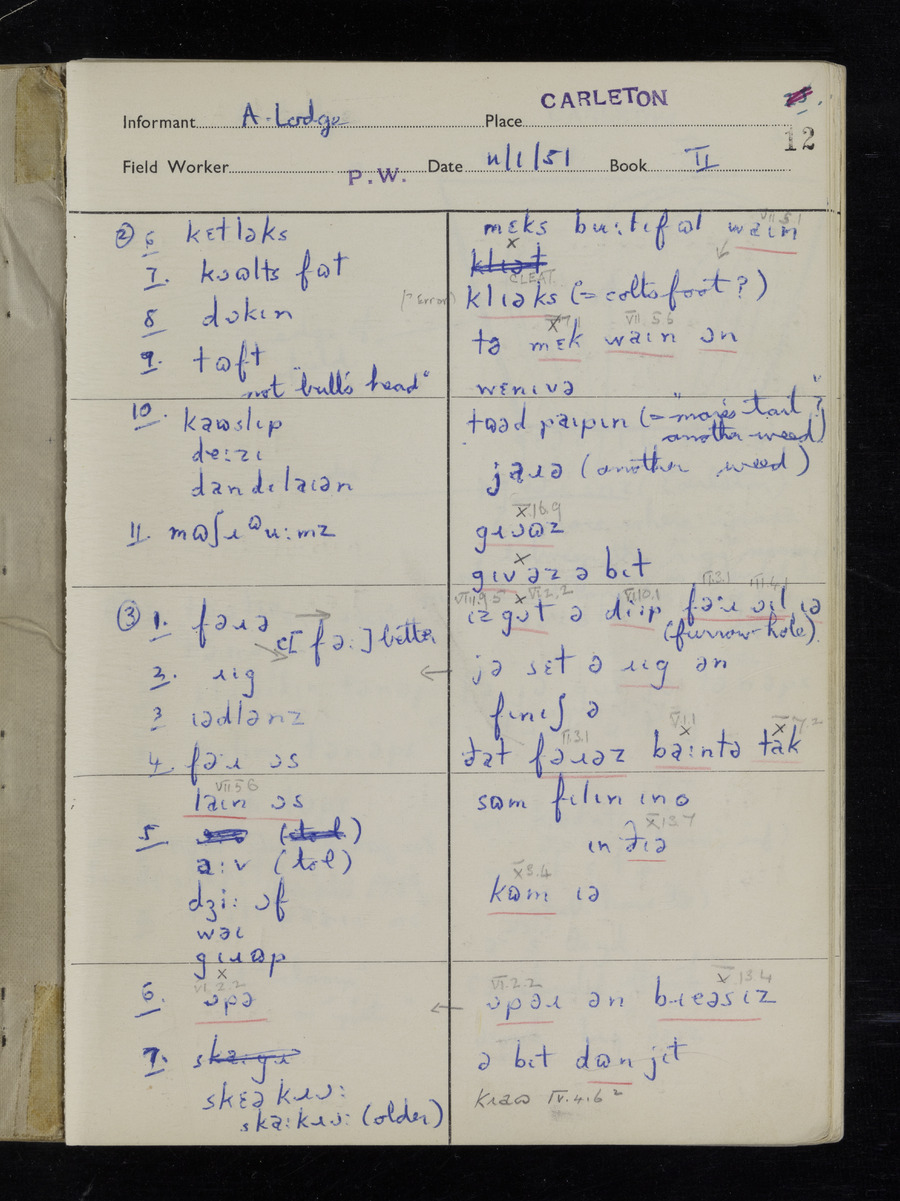 CARLETON
Informant A. Lodge Place
12
Field Worker P.W. Date 11/1/51 Book II
② 6 kɛtləks
7. kɔəlts fɷt
8 dɔkɪn
9. tɷft
not "bull's head"
10. kaɷslɪp
deːzɪ
dandɪlaɪən
11. mɷʃɹɷuːmz
③ 1. fəɹə
c[fəː] better
2. ɹɪg
3 ɪədlənz
4. fəɹ ɔs
VII 5 6
laɪn ɔs
5. (tɔl)
aːv (tɔl)
dʒiː ɔf
wəɪ
gɪɹɷp
VI.2.2
6. ɔpə
7. skɛəkɹɔː
skaːkɹɔː (older)
VII 5.1
mɛks buːtɪfɷl waɪn
klɪət
CLEAT
(? Error) klɪəks (= coltsfoot?)
VII. 5.6
tə mɛk waɪn ɔn
wɛnɪvə
tɷəd paɪpɪn (= "mare's tail"?
another weed)
jaɹə (another weed)
X 16.9
gɪv əz ə bɪt
VIII.9.5 X VI.2.2 VI.10.1 II.3.1 III.4.1
ɪz gɔt ə diːp fəɹ ɔɪl ɪə
(furrow-hole)
← jə sɛt ə ɹɪg ən
fɪnɪʃ ə
II.3.1 VI.1.1 X 7.2
ðat fəɹəz baɪntə tak
sɷm fɪlɪn ɪno
X 13.7
ɪn ðɪə
X 5.4
kɷm ɪə
VI.2.2 X 13.4
← ɔpəɹ ən bɹɛəsɪz
ə bɪt dɷn jɪt
kɹaɷ IV.4.6²